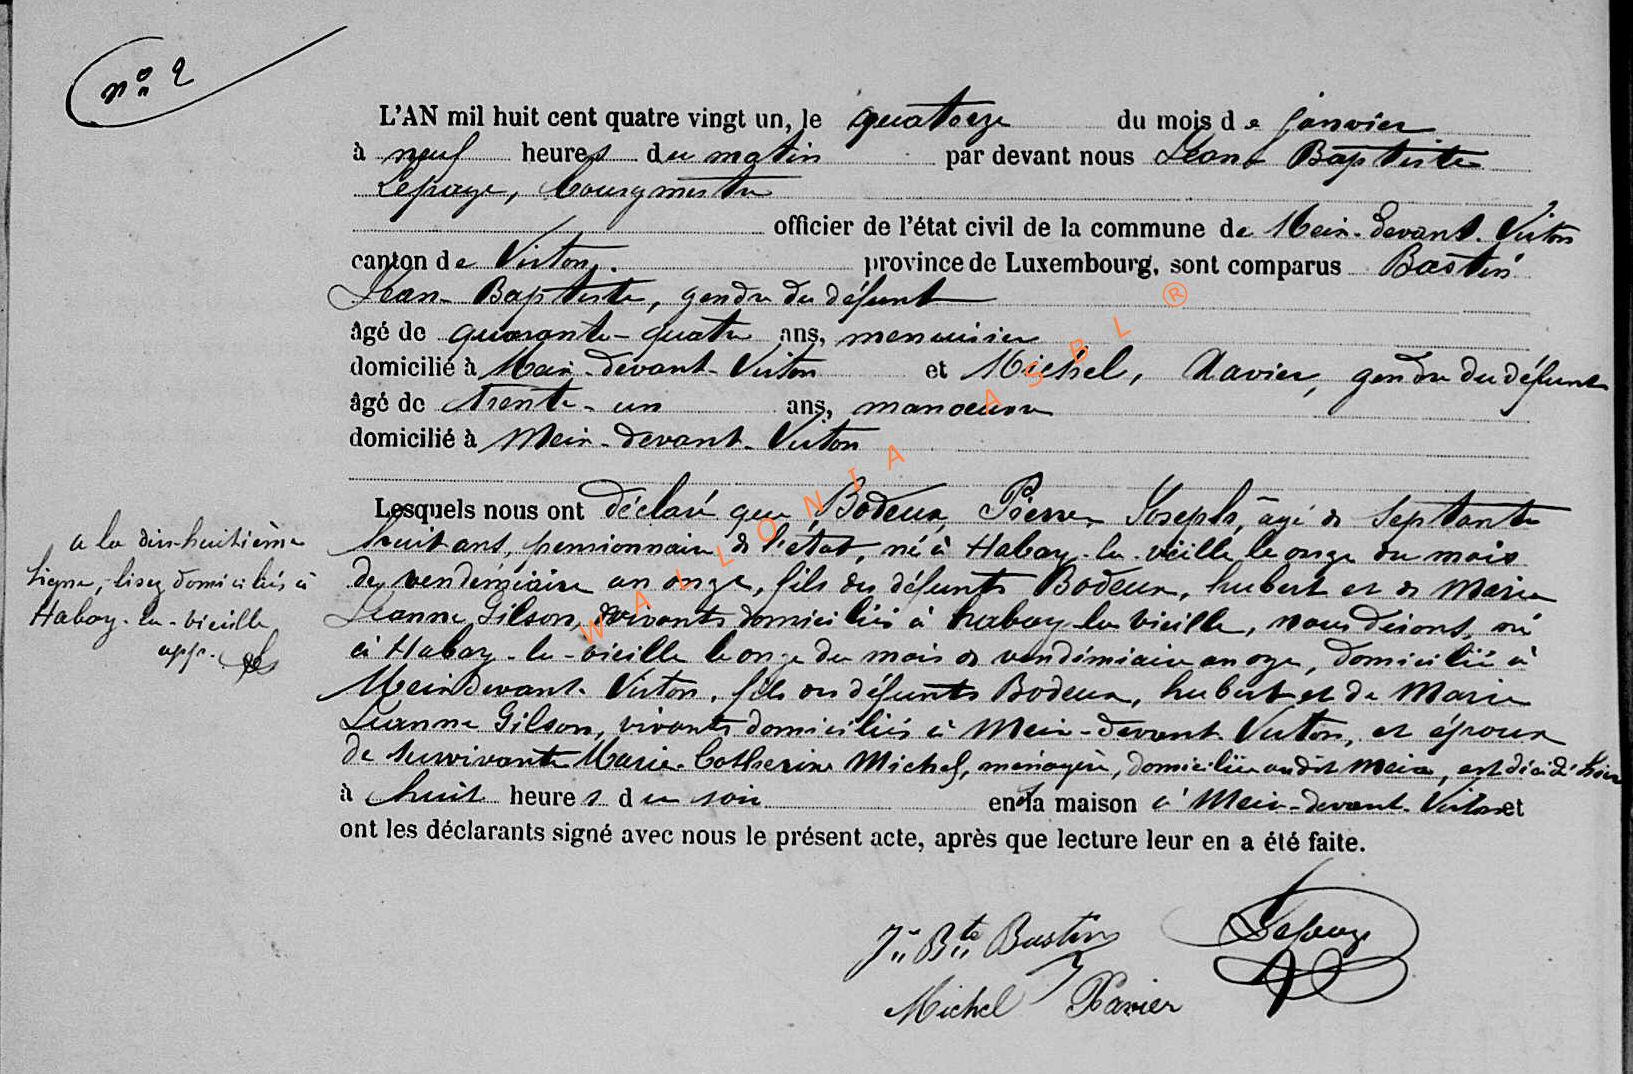 n° 2
L'AN mil huit cent quatre vingt un, le quatorze du mois de janvier
à neuf heures du matin par devant nous Jean Baptiste
Lepage, bourgmestre
officier de l'état civil de la commune de Meix-devant-Virton
canton de Virton, province de Luxembourg, sont comparus Bastin
Jean-Baptiste, gendre du défunt
âgé de quarante-quatre ans, menuisier
domicilié à Meix-devant-Virton et Michel, Xavier, gendre du défunt
âgé de trente-un ans, manoeuvre
domicilié à Meix-devant-Virton
Lesquels nous ont déclaré que Bodeux Pierre Joseph, âgé de septante
huit ans, pensionnaire de l'état, né à Habay-la-vieille le onze du mois
de vendémiaire an onze, fils des défunts Bodeux, hubert et de Marie
Jeanne Gilson, vivants domiciliés à habay-la vieille, nous disons, né
à Habay-la-vieille le onze du mois de vendémiaire an onze, domicilié à
Meix devant-Virton, fils des défunts Bodeux, hubert et de Marie
Jeanne Gilson, vivants domiciliés à Meix-devant-Virton, et époux
de survivante Marie-Catherine Michel, ménagère, domiciliée audit Meix, est décédé hier
à huit heures du soir en sa maison à Meix-devant-Virton et
ont les déclarants signé avec nous le présent acte, après que lecture leur en a été faite.
a la dix-huitième
ligne, lisez domiciliés à
Habay-la-vieille
app.
Jn Bte Bastin
Lepage
Michel Xavier
WALLONIA ASBL ®